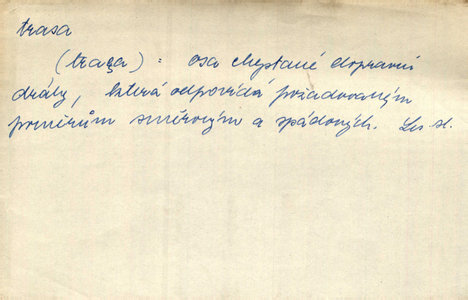 trasa
(traça): osa chystané dopravní
dráhy, která odpovídá požadovaným
poměrům směrovým a spádových. Les. sl.